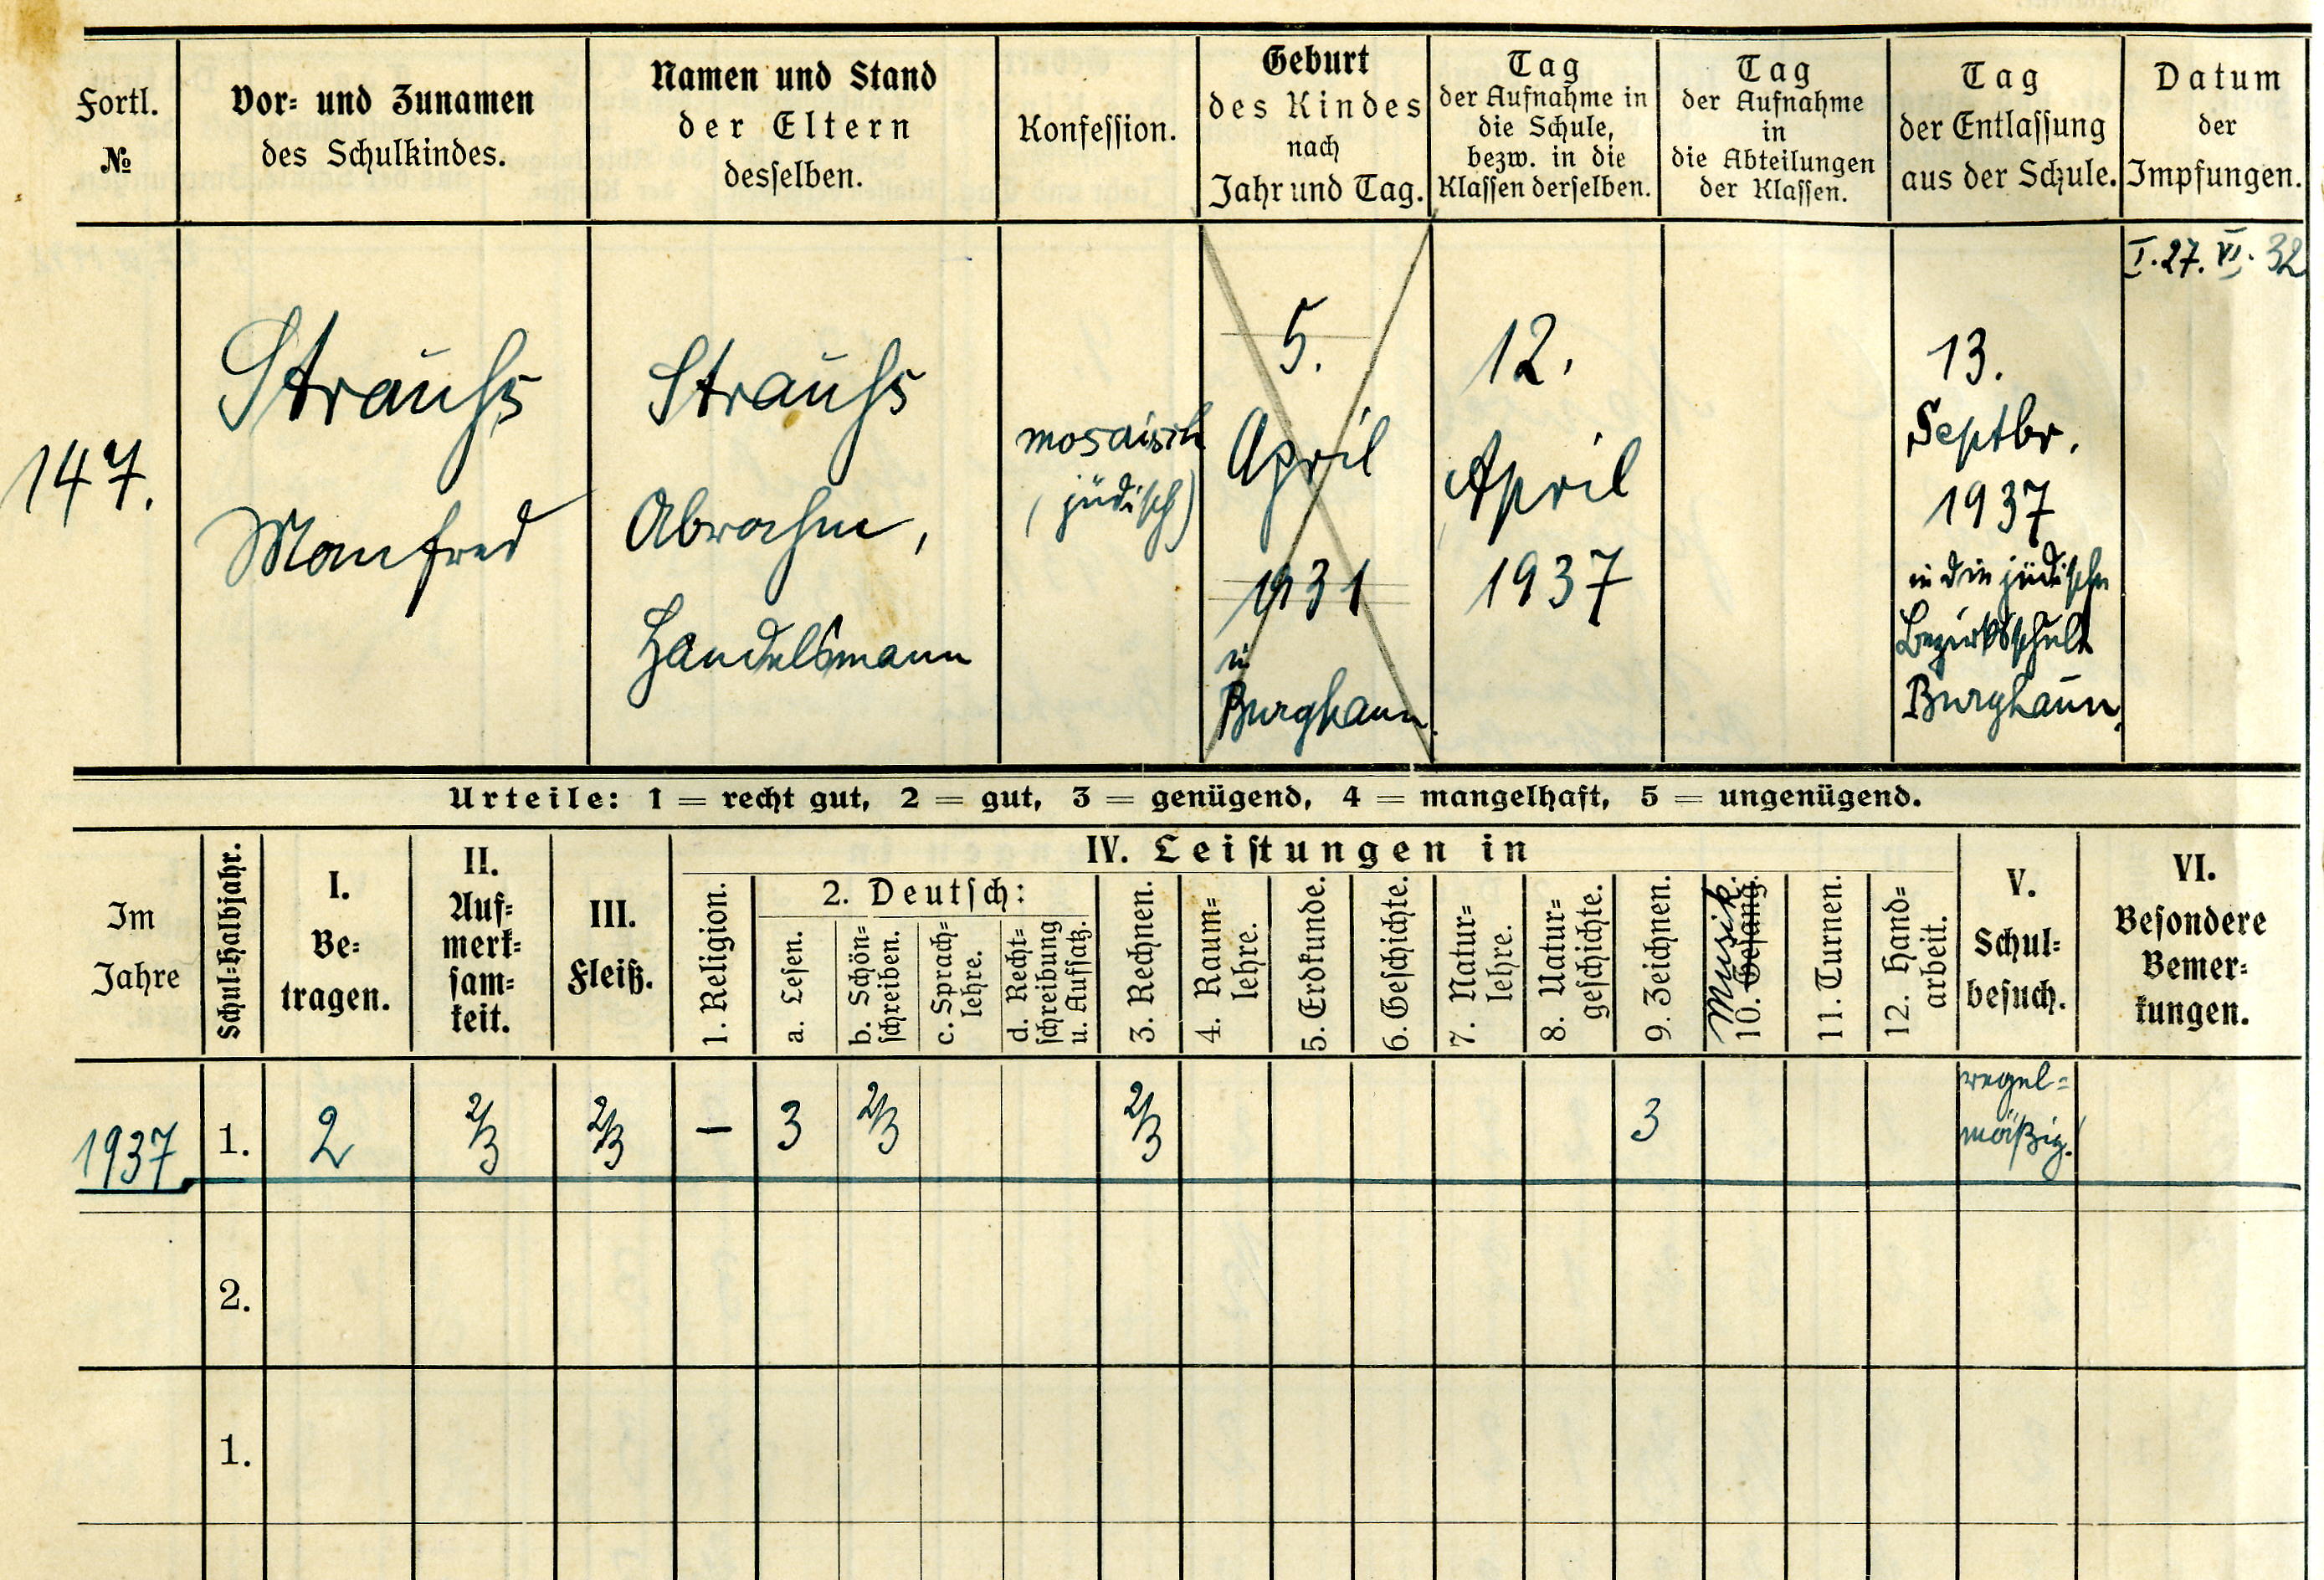 Fortl. №
Vor- und Zunamen
des Schulkindes.
Namen und Stand
der Eltern
desselben.
Konfession.
Geburt
des Kindes
nach
Jahr und Tag.
Tag
der Aufnahme in
die Schule,
bezw. in die
Klassen derselben.
Tag
der Aufnahme
in
die Abteilungen
der Klassen.
Tag
der Entlassung
aus der Schule.
Datum
der
Impfungen.
147.
Strauhs
Manfred
Strauhs
Abrahm,
Handelsmann
mosaisch
(jüdisch)
5.
April
1931
in
Burghaun.
12.
April
1937
13.
Septbr.
1937
in die jüdische
Bezirksschule
Burghaun.
I. 27. VI. 32
Urteile: 1 = recht gut, 2 = gut, 3 = genügend, 4 = mangelhaft, 5 = ungenügend.
Im
Jahre
Schul-Halbjahr.
I.
Be-
tragen.
II.
Auf-
merk-
sam-
keit.
III.
Fleiß.
IV. Leistungen in
1. Religion.
2. Deutsch:
a. Lesen.
b. Schön-
schreiben.
c. Sprach-
lehre.
d. Recht-
schreibung
u. Aufsatz.
3. Rechnen.
4. Raum-
lehre.
5. Erdkunde.
6. Geschichte.
7. Natur-
lehre.
8. Natur-
geschichte.
9. Zeichnen.
Musik.
10. Gesang.
11. Turnen.
12. Hand-
arbeit.
V.
Schul-
besuch.
VI.
Besondere
Bemer-
kungen.
1937 1. 2 2/3 2/3 — 3 2/3 2/3 3 regel-
mäßig.
2.
1.